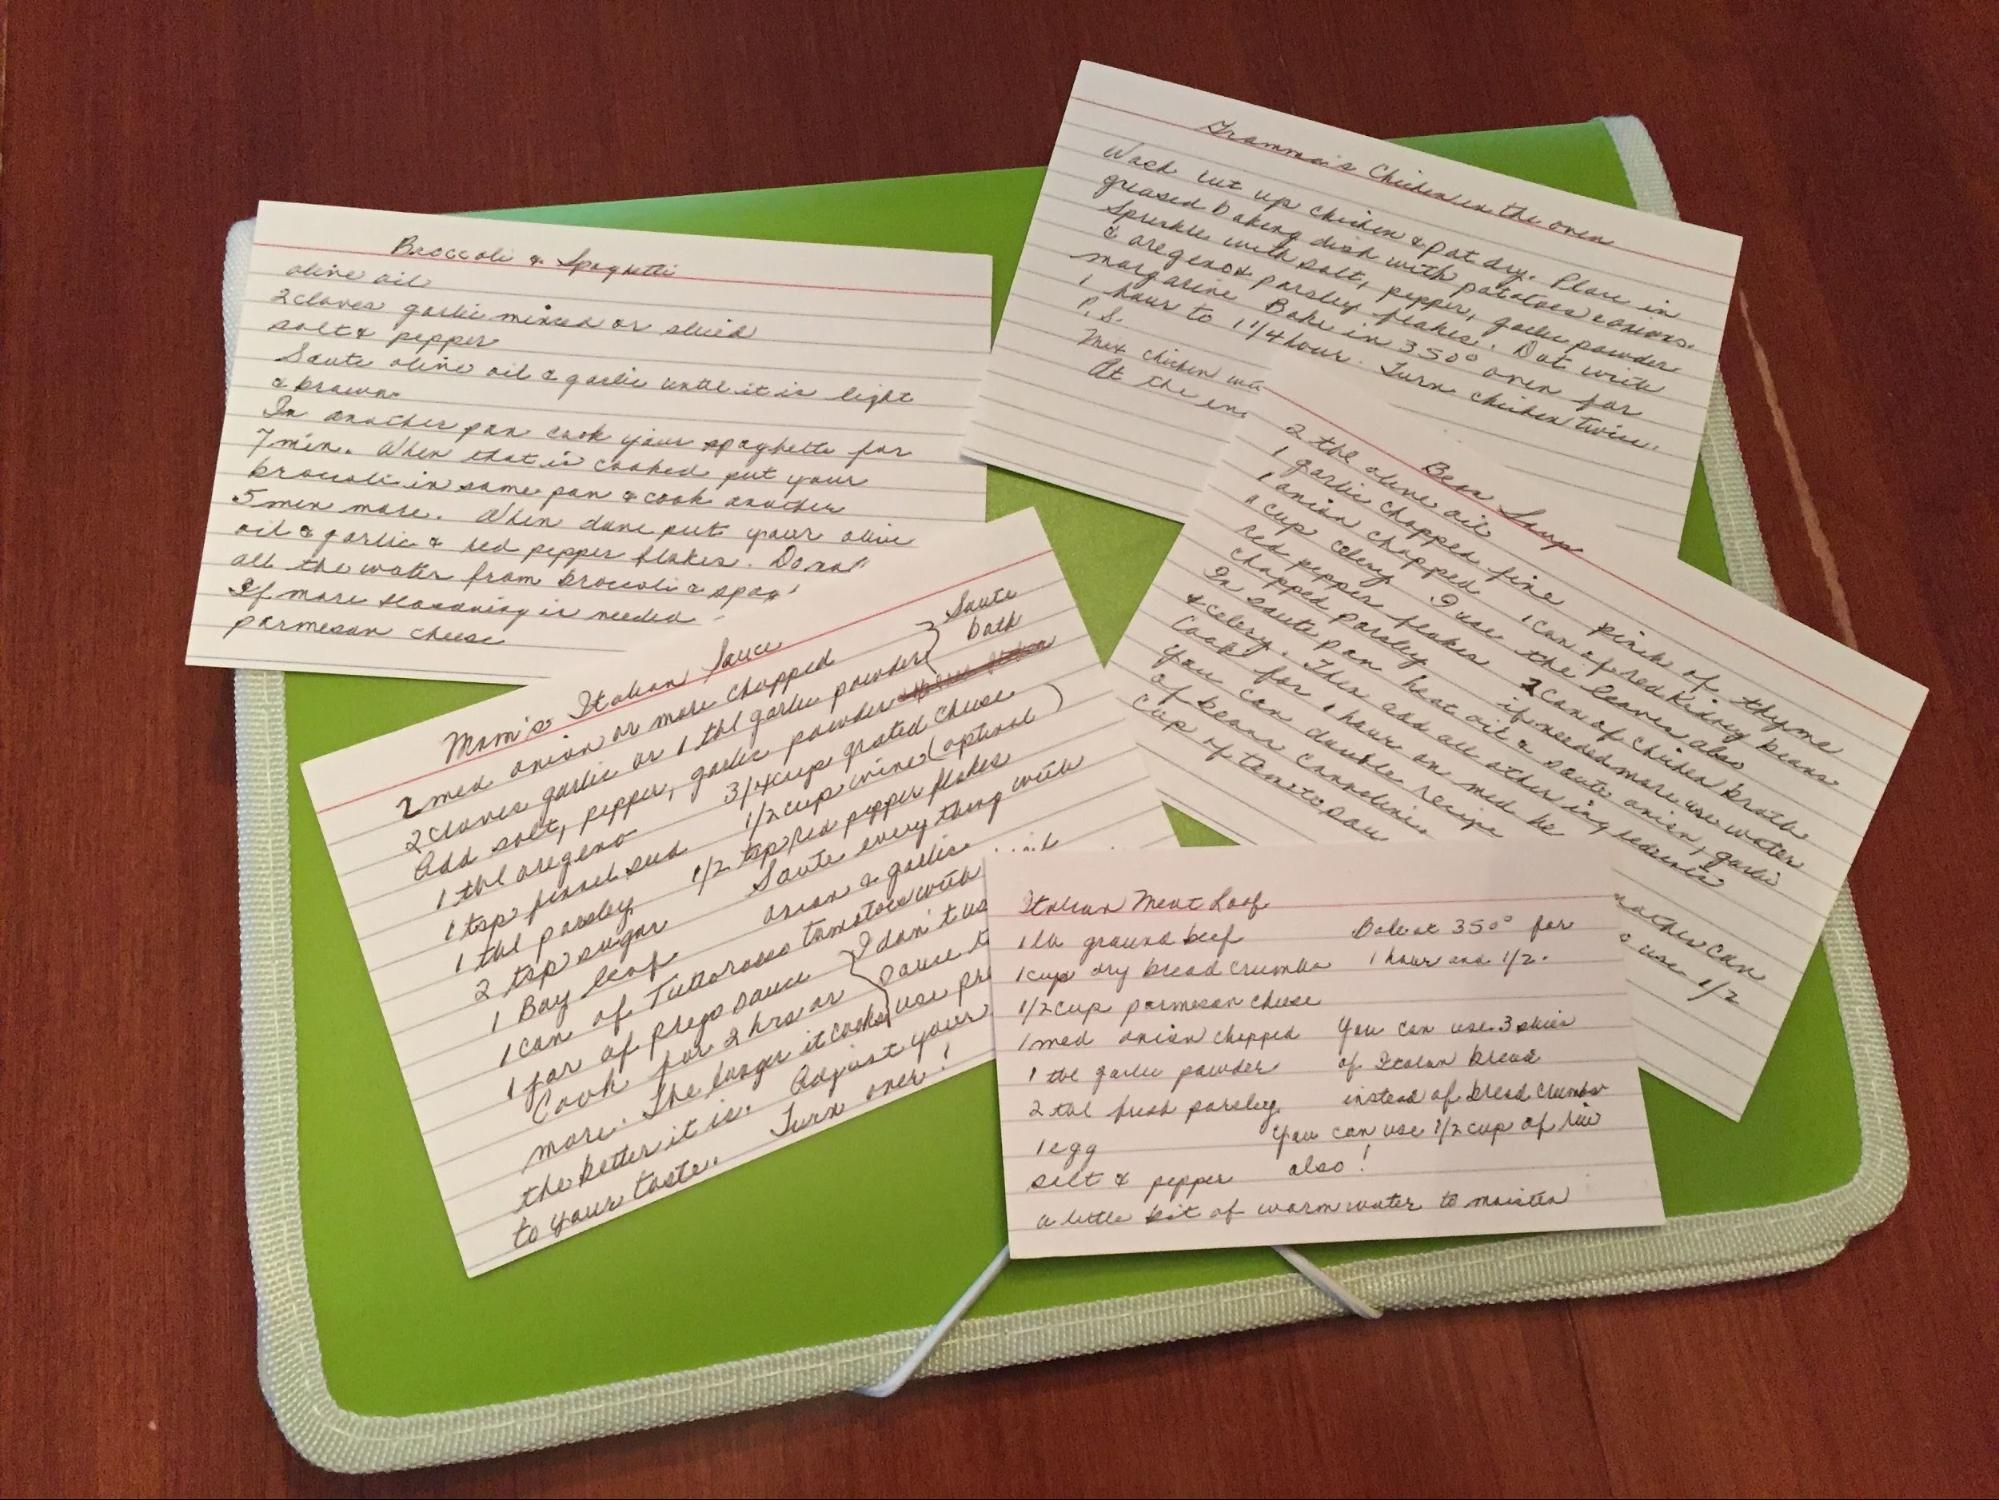 Broccoli & Spaghetti
olive oil
2 cloves garlic minced or sliced
salt & pepper
Saute olive oil & garlic until it is light
& brown.
In another pan cook your spaghetti for
7 min. When that is cooked put your
broccoli in same pan & cook another
5 min more. When done put your olive
oil & garlic & red pepper flakes. Do not
all the water from broccoli & spag
If more seasoning is needed
parmesan cheese
Gramma's Chicken in the oven
Wash cut up chicken & pat dry. Place in
greased baking dish with potatoes & onions.
Sprinkle with salt, pepper, garlic powder
& oregano & parsley flakes. Dot with
margarine Bake in 350° oven for
1 hour to 1 1/4 hour. Turn chicken twice.
P.S.
Mix chicken
At the en
Bean Soup
2 tbl olive oil
1 garlic chopped fine pinch of thyme
1 onion chopped 1 can of red kidney beans
" cup celery I use the leaves also
red pepper flakes 2 Can of chicken broth
chopped parsley if needed more use water
In saute pan heat oil & saute onion, garlic
& celery. Then add all other ingredients
Cook for 1 hour on med
You can double recipe
of beans Cannelini
cup of tomato
can
use 1/2
Mom's Italian Sauce
2 med onion or more chopped } Saute
2 cloves garlic or 1 tbl garlic powder } both
Add salt, pepper, garlic powder
1 tbl oregeno 3/4 cup grated cheese
1 tsp fennel seed 1/2 cup wine (optional)
1 tbl parsley 1/2 tsp red pepper flakes
2 tsp sugar Saute everything with
1 Bay leaf onion & garlic
1 can of Tuttorosso tomatoes with
1 jar of prego sauce } I don't us
Cook for 2 hrs or } sauce
more. The longer it cooks } use
the better it is. Adjust your
to your taste. Turn over!
Italian Meat Loaf
1 lb ground beef Bake at 350° for
1 cup dry bread crumbs 1 hour and 1/2.
1/2 cup parmesan cheese
1 med onion chopped You can use 3 slices
1 tbl garlic powder of Italian bread
2 tbl fresh parsley instead of bread crumbs
1 egg You can use 1/2 cup of rice
salt & pepper also!
a little bit of warm water to moisten